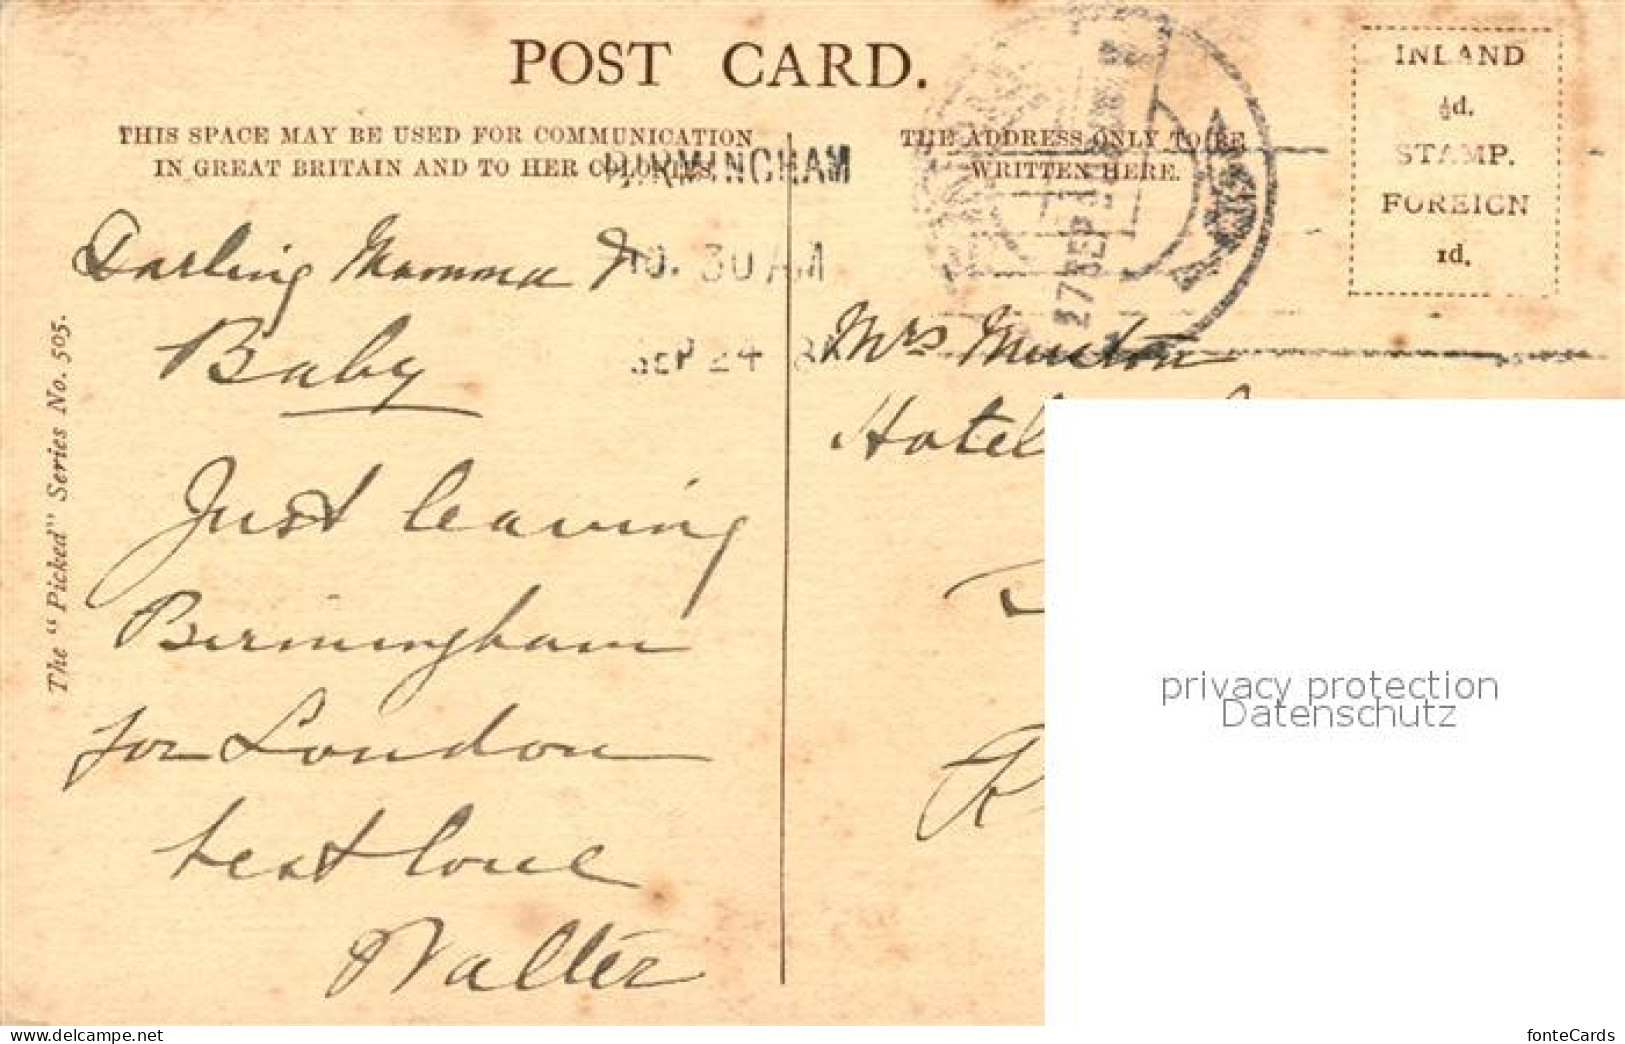 POST CARD.
THIS SPACE MAY BE USED FOR COMMUNICATION
IN GREAT BRITAIN AND TO HER COLONIES.
THE ADDRESS ONLY TO BE
WRITTEN HERE.
INLAND
½d.
STAMP.
FOREIGN
1d.
BIRMINGHAM
10. 30 AM
SEP 24
27 SEP
The "Picked" Series No. 505.
Darling Mamma &
Baby
Just leaving
Birmingham
for London
best love
Walter
Mrs
Hotel
privacy protection
Datenschutz
www.ansichtskarten-center.de
fonteCards